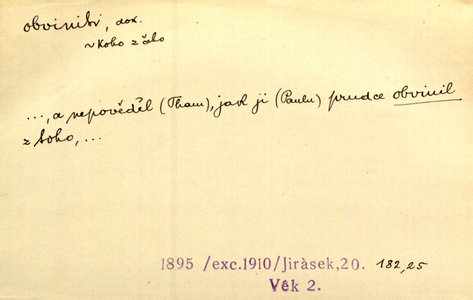 obviniti, dok.
~ koho z čeho
..., a nepověděl (Tham), jak ji (Paulu) prudce obvinil
z toho, ...
1895 /exc.1910/Jiràsek,20. 182,25
Věk 2.